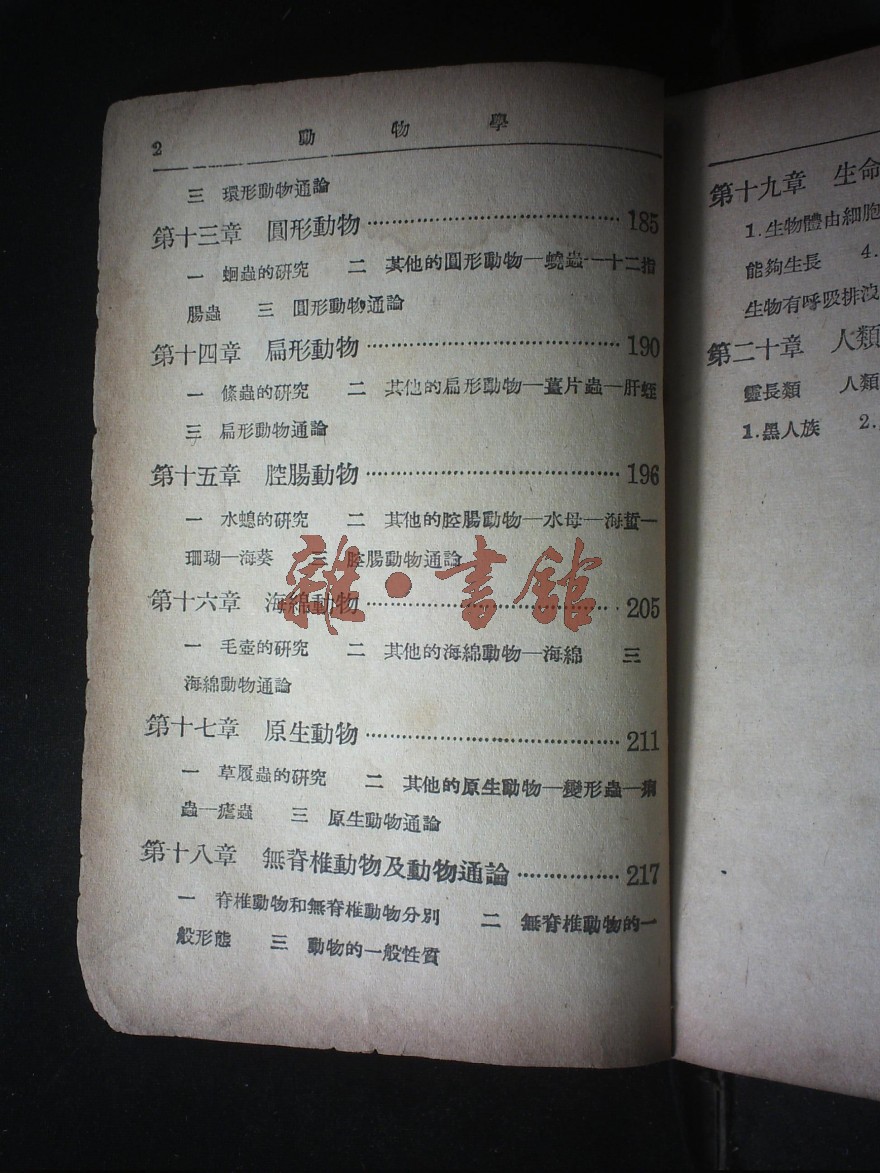 2 動物學
三 環形動物通論
第十三章 圓形動物 185
一 蛔蟲的研究 二 其他的圓形動物—蟯蟲—十二指
腸蟲 三 圓形動物通論
第十四章 扁形動物 190
一 絛蟲的研究 二 其他的扁形動物—薑片蟲—肝蛭
三 扁形動物通論
第十五章 腔腸動物 196
一 水螅的研究 二 其他的腔腸動物—水母—海蜇—
珊瑚—海葵 三 腔腸動物通論
第十六章 海綿動物 205
一 毛壺的研究 二 其他的海綿動物—海綿 三
海綿動物通論
第十七章 原生動物 211
一 草履蟲的研究 二 其他的原生動物—變形蟲—痢
蟲—瘧蟲 三 原生動物通論
第十八章 無脊椎動物及動物通論 217
一 脊椎動物和無脊椎動物分別 二 無脊椎動物的一
般形態 三 動物的一般性質
雜·書館
第十九章 生命
1.生物體由細胞
能夠生長 4.
生物有呼吸排洩
第二十章 人類
靈長類 人類
1.黑人族 2.